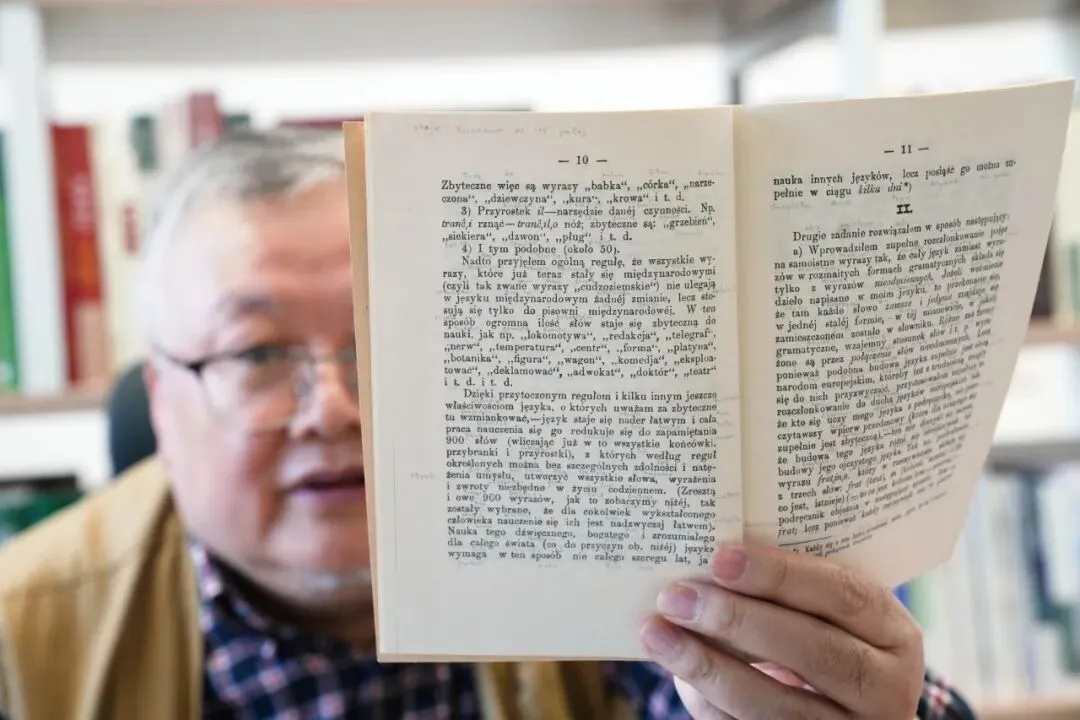 — 10 —
Zbyteczne więc są wyrazy „babka“, „córka“, „narze-
czona“, „dziewczyna“, „kura“, „krowa“ i t. d.
3) Przyrostek il—narzędzie danéj czynności. Np.
tranĉ,i rznąć—tranĉ,il,o nóż; zbyteczne są: „grzebień“,
„siekiera“, „dzwon“, „pług“ i t. d.
4) I tym podobne (około 50).
Nadto przyjąłem ogólną regułę, że wszystkie wy-
razy, które już teraz stały się międzynarodowymi
(czyli tak zwane wyrazy „cudzoziemskie“) nie ulegają
w języku międzynarodowym żadnéj zmianie, lecz sto-
sują się tylko do pisowni międzynarodowéj. W ten
sposób ogromna ilość słów staje się zbyteczną do
nauki, jak np. „lokomotywa“, „redakcja“, „telegraf“,
„nerw“, „temperatura“, „centr“, „forma“, „platyna“,
„botanika“, „figura“, „wagon“, „komedja“, „eksploa-
tować“, „deklamować“, „adwokat“, „doktór“, „teatr“
i t. d. i t. d.
Dzięki przytoczonym regułom i kilku innym jeszcze
właściwościom języka, o których uważam za zbyteczne
tu wzmiankować,—język staje się nader łatwym i cała
praca nauczenia się go redukuje się do zapamiętania
900 słów (wliczając już w to wszystkie końcówki,
przybranki i przyrostki), z których według reguł
określonych można bez szczególnych zdolności i natę-
żenia umysłu, utworzyć wszystkie słowa, wyrażenia
i zwroty niezbędne w życiu codziennem. (Zresztą
i owe 900 wyrazów, jak to zobaczymy niżéj, tak
zostały wybrane, że dla cokolwiek wykształconego
człowieka nauczenie się ich jest nadzwyczaj łatwem).
Nauka tego dźwięcznego, bogatego i zrozumiałego
dla całego świata (co do przyczyn ob. niżéj) języka
wymaga w ten sposób nie całego szeregu lat, ja
— 11 —
nauka innych języków, lecz posiąść go można zu-
pełnie w ciągu kilku dni*)
II.
Drugie zadanie rozwiązałem w sposób następujący:
a) Wprowadziłem zupełne rozczłonkowanie pojęć
na samoistne wyrazy tak, że cały język zamiast wyra-
zów w rozmaitych formach gramatycznych składa się
tylko z wyrazów nieodmiennych. Jeżeli weźmiecie
dzieło napisane w moim języku, to przekonacie się,
że tam każde słowo zawsze i jedynie znajduje się
w jednéj stałéj formie, - w téj mianowicie, w jakiéj
zamieszczonem zostało w słowniku. Różne zaś formy
gramatyczne, wzajemny stosunek słów i t. p. wyra-
żone są przez połączenie słów nieodmiennych. Lecz
ponieważ podobna budowa języka zupełnie jest obcą
narodom europejskim, którzyby też z trudnością mogli
się do niéj przyzwyczaić, przystosowałem zupełnie to
rozczłonkowanie do ducha języków europejskich, tak,
że kto się uczy mego języka z podręcznika, nie prze-
czytawszy wpierw przedmowy (która dla uczącego się
zupełnie jest zbyteczną),—ten nie domyśli się nawet,
że budowa tego języka różni się czemkolwiek od
budowy jego ojczystego języka. Tak np. pochodzenie
wyrazu frat,in,o, który w rzeczywistości składa się
z trzech słów: frat (brat), in (kobieta, samica), o
co jest, istnieje) (= to co jest kobietą-bratem
podręcznik objaśnia w następujący sposób: brat
frat; lecz ponieważ każdy rzeczownik
*) Każdy się o tem